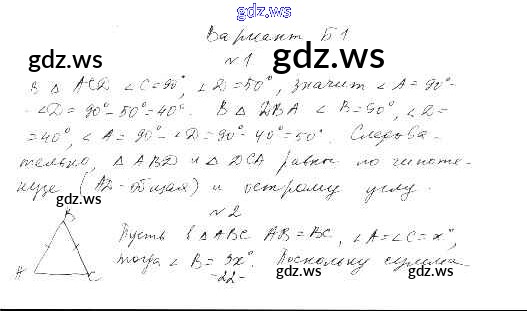 gdz.ws
Вариант Б1
gdz.ws №1 gdz.ws
В △ ACD ∠C=90°, ∠D=50°, значит ∠A=90°-
-∠D=90°-50°=40°. В △ DBA ∠B=90°, ∠D=
=40°, ∠A=90°-∠D=90°-40°=50°. Следова-
тельно, △ ABD и △ DCA равны по гипоте-
нузе (AD-общая) и острому углу.
gdz.ws gdz.ws
№2
B
Пусть в △ABC AB=BC, ∠A=∠C=x°,
A C тогда ∠B=3x°. Поскольку сумма
-22-
gdz.ws gdz.ws gdz.ws